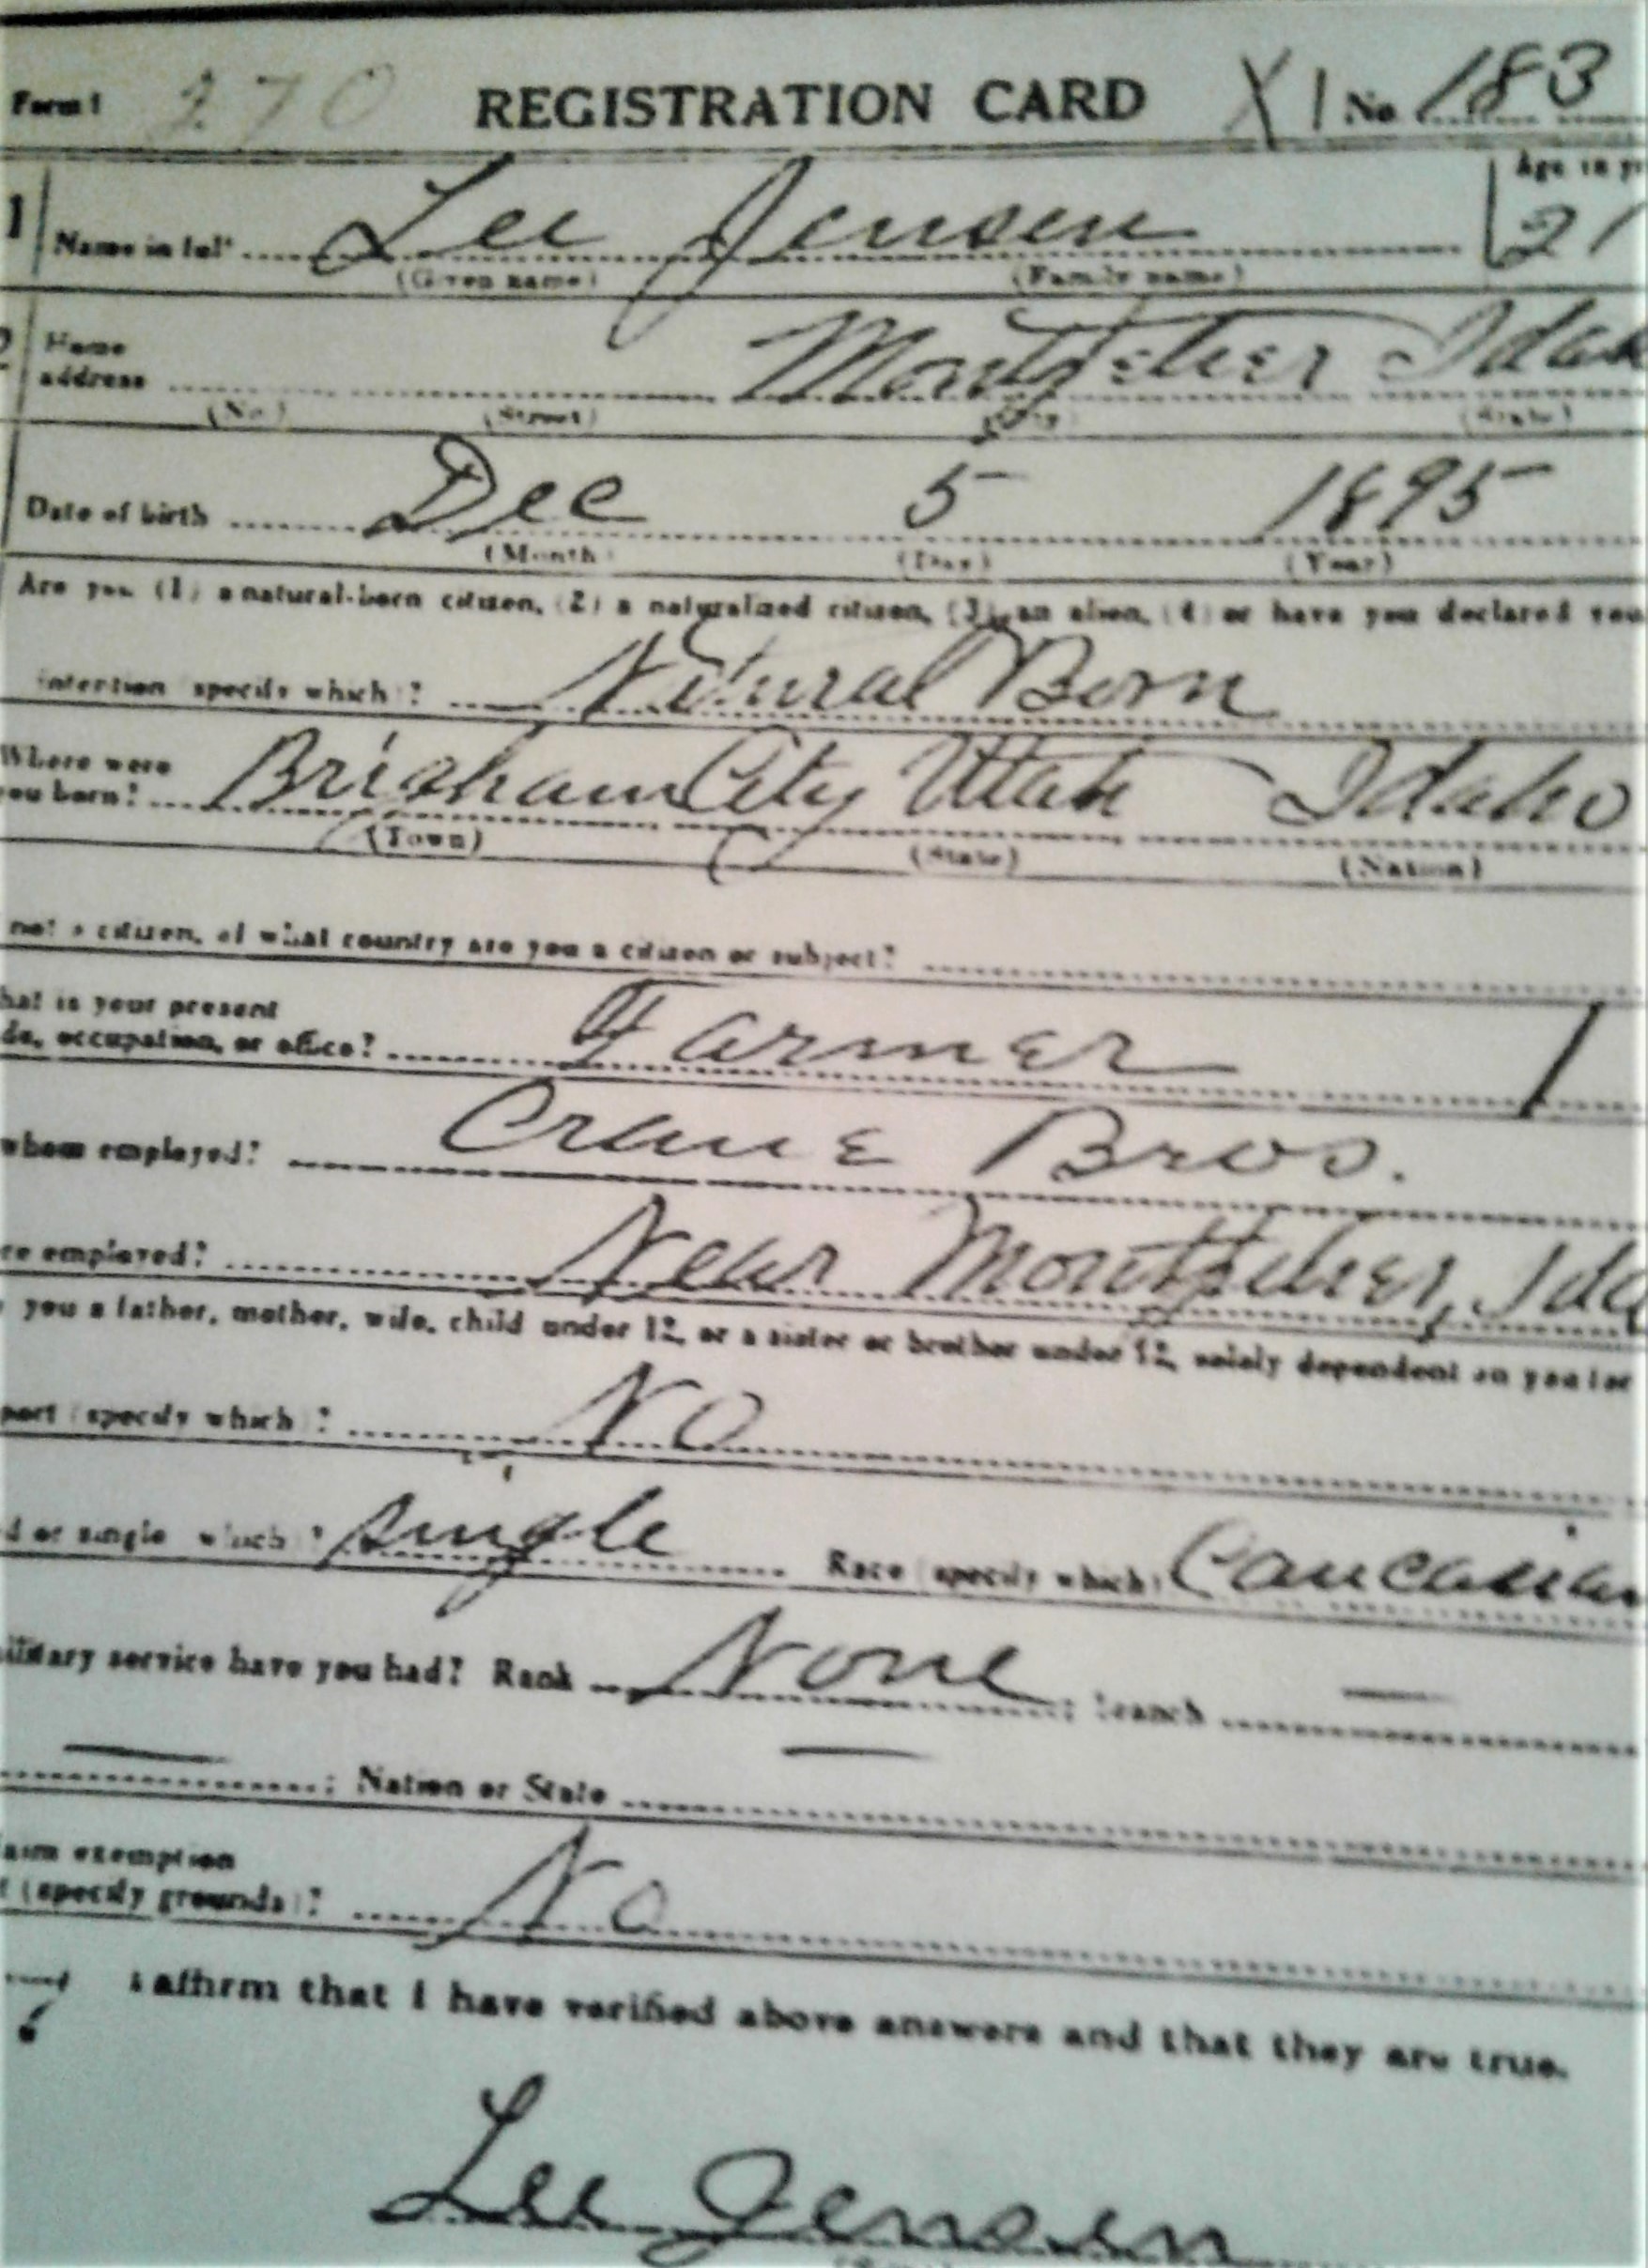 Form 1 270 REGISTRATION CARD X 1 No. 183
1 Name in full Lee Jensen Age in yr 21
(Given name) (Family name)
2 Home address Montpelier Idah
(No.) (Street) (City) (State)
Date of birth Dec 5 1895
(Month) (Day) (Year)
Are you (1) a natural-born citizen, (2) a naturalized citizen, (3) an alien, (4) or have you declared you
intention (specify which)? Natural Born
Where were
you born? Brigham City Utah Idaho
(Town) (State) (Nation)
not a citizen, of what country are you a citizen or subject?
hat is your present
de, occupation, or office? Farmer
whom employed? Crane Bros.
re employed? Near Montpelier, Ida
you a father, mother, wife, child under 12, or a sister or brother under 12, solely dependent on you for
port (specify which)? No
d or single (which)? Single Race (specify which) Caucasian
military service have you had? Rank None ; branch —
— ; Nation or State —
aim exemption
(specify grounds)? No
I affirm that I have verified above answers and that they are true.
Lee Jensen